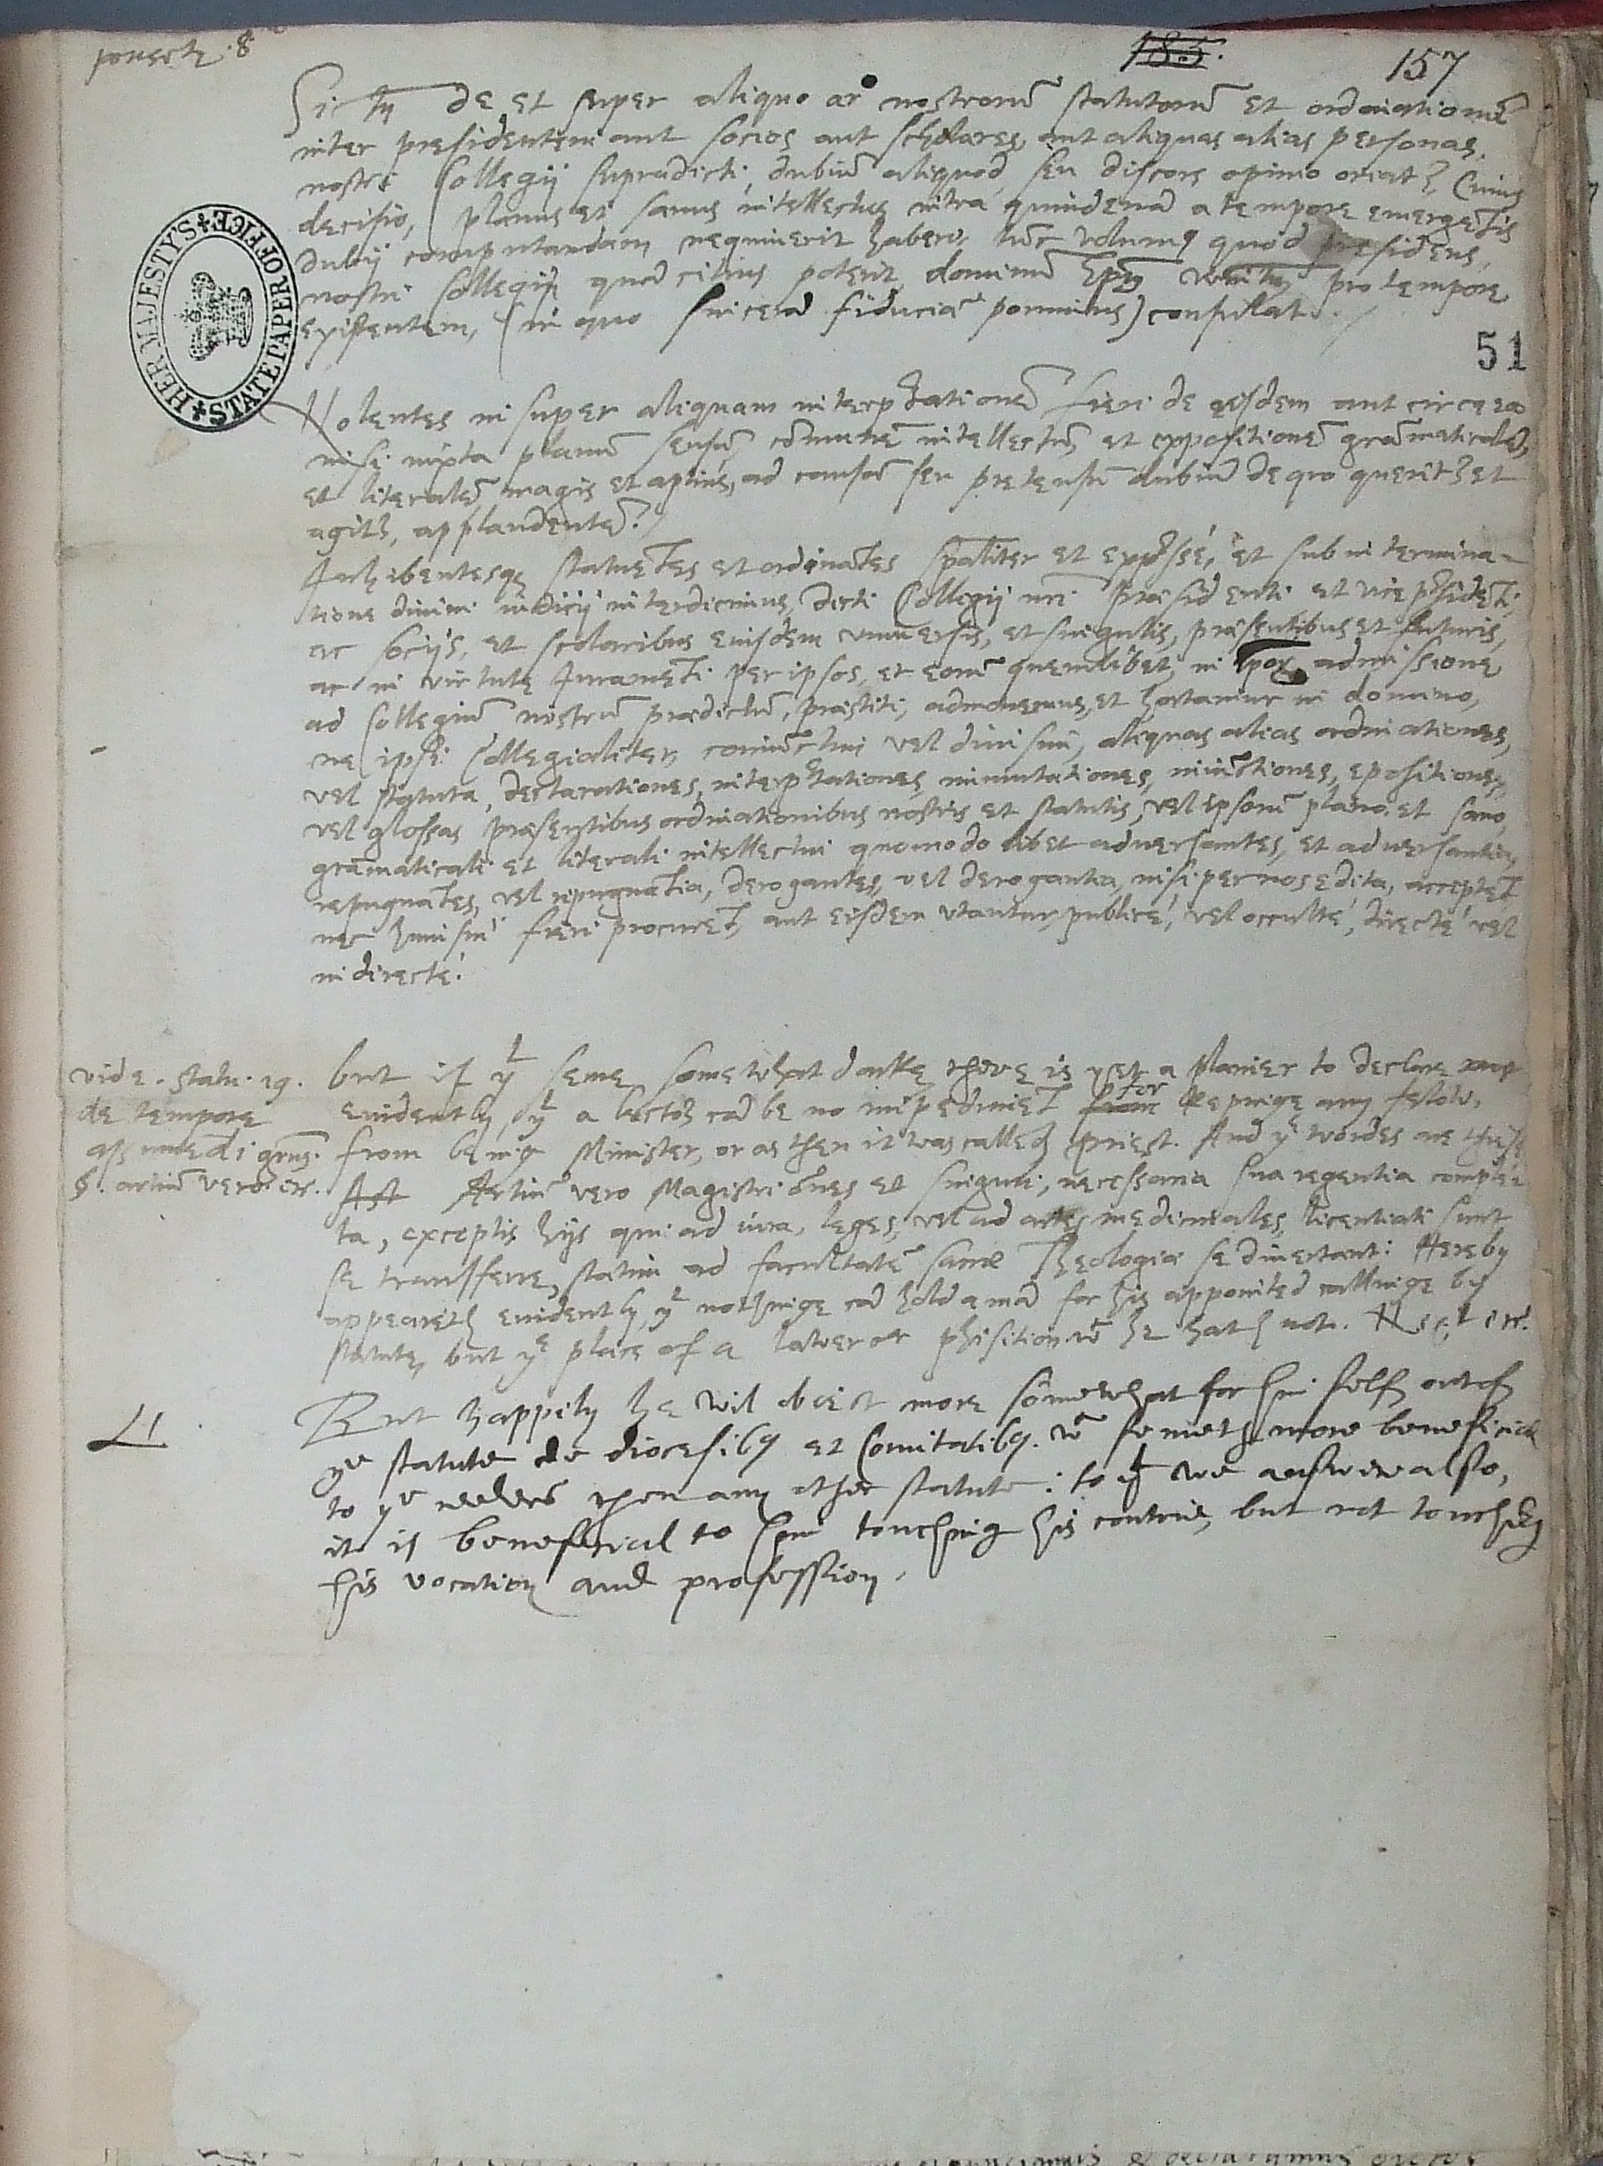 183.
157
Si tn̄ de et super aliquo ar nostrorū statutorū et ordinationū
inter presidentem aut socios aut scholares, aut aliquas alias personas,
nostri Collegij supradicti, dubiū aliquod, seu discors opinio oriatr, Cuius
decisio, planus et sanus intellectus intra quindenā a tempore emergētis
dubij computandam, nequiuerit haberi, tūc volumus quod presidens,
nostri Collegij quā citius poterit, dominū Epm̄ Winton pro tempore
existentem, (in quo sincerā fiduciā ponimus) consulat.
51
HER MAJESTY'S STATE PAPER OFFICE
Nolentes insuper aliquam interpretationē fieri de eisdem aut circa ea
nisi iuxta planū sensū, cōmunē intellectū, et expositionē grāmaticalē,
et literalē, magis et aptius, ad casum seu pretensū dubiū de quo queritr et
agitr, applaudentē.
Inhibentesq statuētes et ordinātes spāliter et exprsse, et sub intermina-
tione diuini iudicij interdicimus, dicti Collegij nri Præsidenti et viceprsidēti,
ac socijs, et scolaribus eiusdem vniuersis, et singulis, præsentibus et futuris,
ac in virtute Iuramēti per ipsos, et eorū quemlibet, in admissione
ad Collegiū nostrū prædictū, præstiti, admonemus, et hortamur in domino,
ne ipsi Collegialiter, coniūctim vel diuisim, aliquas alias ordinationes,
vel statuta, declarationes, interprtationes, immutationes, iniūctiones, epositiones,
vel glossas præsentibus ordinationibus nostris et statutis, vel ipsorū plano et sano,
grāmaticali et literali intellectui quomodolibet aduersantes, et aduersantia,
repugnātes, vel repugnātia, derogantes, vel derogantia, nisi per nos edita, acceptēt
nec huiusmi fieri procurēt, aut eisdem vtantur, publicé, vel occulté, directé vel
indirecté.
vide. statu. 29.
de tempore
assumēdi grus.
§. artiū vero. etc.
but if yt seme somewhat darke, there is yet a planier to declare most
euidently, yt a lector cā be no impedimēt from for kepinge any felow,
from being Minister, or as then it was called priest. And ye wordes are these
Ast Artiū vero Magistri ōnes et singuli, necessaria sua regentia comple-
ta, exceptis hijs qui ad iura, leges, vel ad artes medicinales, licentiati sunt
se transferre, statim ad facultatē sacræ Theologiæ se diuertant: Hereby
appeareth euidently, yt nothinge cā hold a mā for his appointed callinge by
statute, but ye place of a lawer or phisition wch he hath not.
But happily he wil obiect more sōmewhat for him self out of
ye statute de diocesibus et Comitatibus. wch semeth more beneficial
to ye then any other statute: to yt we answere also,
it is beneficial to him touching his contrie, but not touching
his vocation and profession.